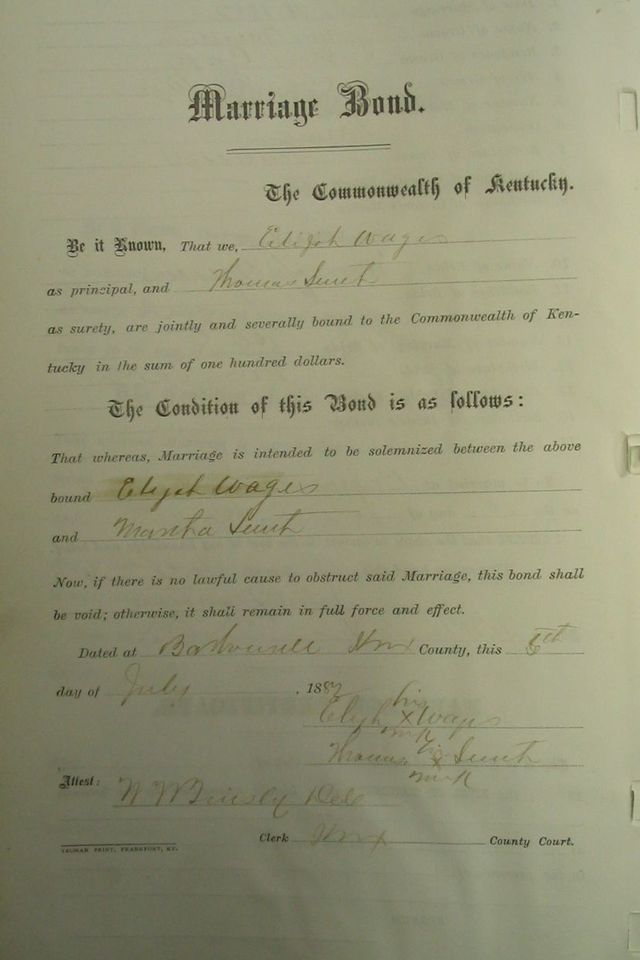 Marriage Bond.
The Commonwealth of Kentucky.
Be it Known, That we, Elijah Wages
as principal, and Thomas Smith
as surety, are jointly and severally bound to the Commonwealth of Ken-
tucky in the sum of one hundred dollars.
The Condition of this Bond is as follows:
That whereas, Marriage is intended to be solemnized between the above
bound Elijah Wages
and Martha Smith
Now, if there is no lawful cause to obstruct said Marriage, this bond shall
be void; otherwise, it shall remain in full force and effect.
Dated at Barbourville Knox County, this
day of July, 188
his
Elijah X Wages
mrk
his
Thomas X Smith
mrk
Attest: W W
Clerk Knox County Court.
YEOMAN PRINT, FRANKFORT, KY.